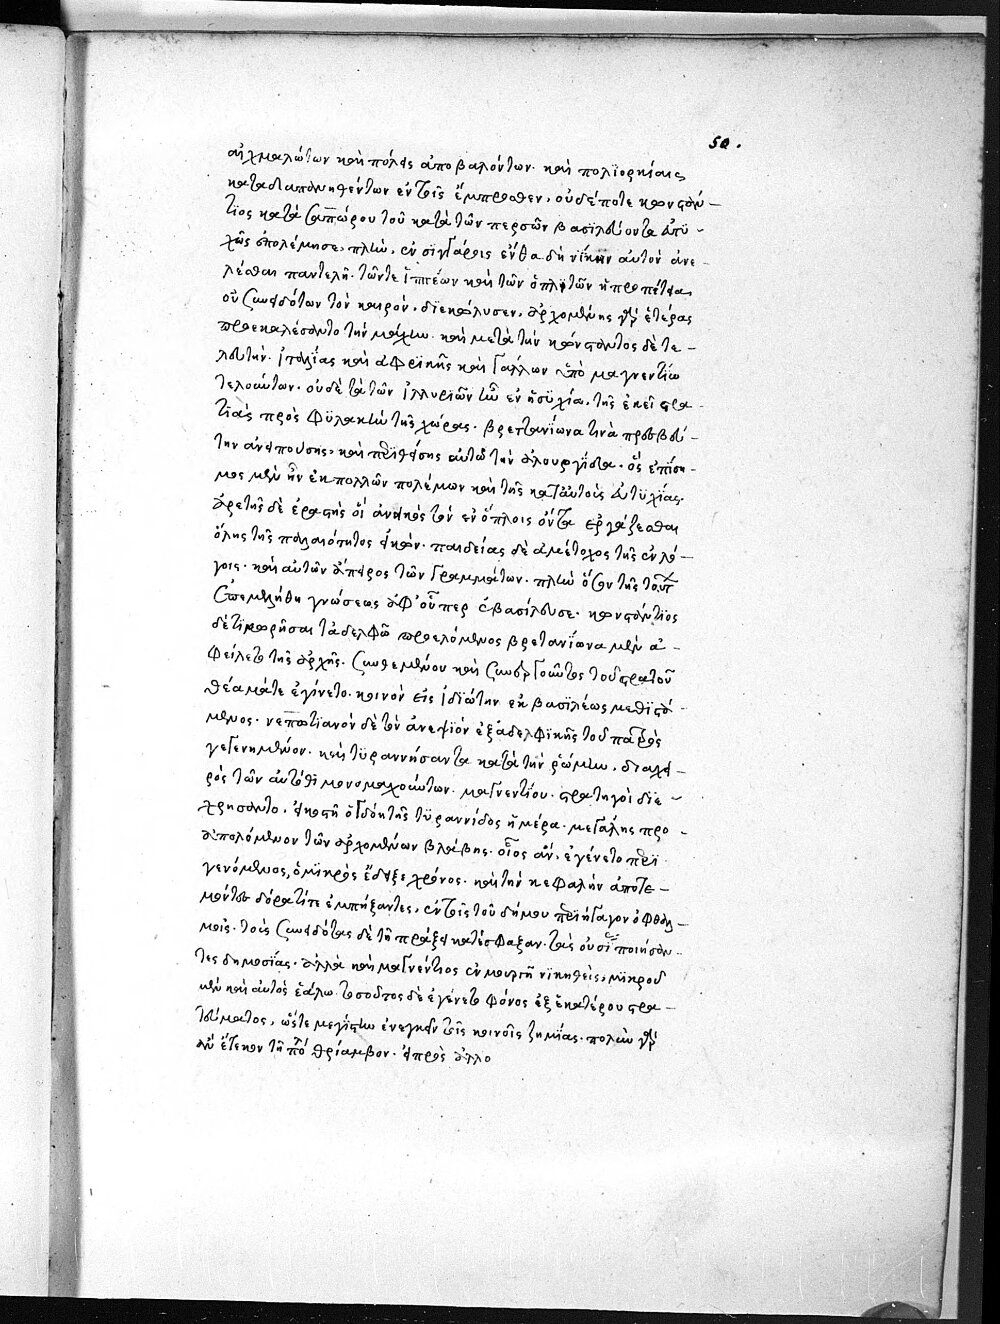 50.
αἰχμαλώτων καὶ πόλεις ἀποβαλόντων. καὶ πολιορκίαις
καταδιαπονηθέντων ἐν τοῖς ἔμπροσθεν, οὐδέποτε κωνστάν-
τιος κατὰ σαπώρου τοῦ κατὰ τῶν περσῶν βασιλεύοντα εὐτυ-
χῶς ἐπολέμησε, πλὴν, ἐν σιγγάροις ἔνθα δὴ νίκην αὐτὸν ἀνε-
λέσθαι παντελῆ. τῶν τε ἱππέων καὶ τῶν ὁπλιτῶν ἡ προπέτεια,
οὐ συνειδότων τὸν καιρὸν, διεκώλυσεν, ἀρχομένης γὰρ ἑτέρας
προεκαλέσαντο τὴν μάχην. καὶ μετὰ τὴν κώνσταντος δὲ τε-
λευτὴν. ἰταλίας καὶ ἀφρικῆς καὶ γάλλων ὑπὸ μαγνεντίῳ
τελούντων. οὐδὲ τὰ τῶν ἰλλυριῶν ἦν ἐν ἡσυχίᾳ. τῆς ἐκεῖ στρα-
τιᾶς πρὸς φυλακὴν τῆς χώρας. βρεττανίωνα τινὰ πρεσβύ-
την ἀνειπούσης, καὶ περιθείσης αὐτῷ τὴν ἁλουργίδα. ὃς ἐπίση-
μος μὲν ἦν ἐκ πολλῶν πολέμων καὶ τῆς κατ' αὐτοὺς εὐτυχίας.
ἀρετῆς δὲ ἐραστὴς οἵ ἀνεικὸς τὸν ἐν ὅπλοις ὄντα ἐργάζεσθαι
ὅλης τῆς παλαιότητος εἰκών. παιδείας δὲ ἀμέτοχος τῆς ἐν λό-
γοις. καὶ αὐτῶν ἄπειρος τῶν γραμμάτων. πλὴν ὅσον τῆς τούτων
ἐπεμελήθη γνώσεως ἀφ' οὗπερ ἐβασίλευσε. κωνστάντιος
δὲ τιμωρῆσαι τἀδελφῷ προελόμενος βρετανίωνα μὲν ἀ-
φείλετο τῆς ἀρχῆς. συνθεμένου καὶ συνεργοῦντος τοῦ στρατοῦ
θέαμά τε ἐγίνετο. κοινὸν εἰς ἰδιώτην ἐκ βασιλέως μεθιστά-
μενος. νεπωτιανὸν δὲ τὸν ἀνεψιὸν ἐξ ἀδελφικῆς τοῦ πατρὸς
γεγενημένον. καὶ τυραννήσαντα κατὰ τὴν ῥώμην. διὰ χει-
ρὸς τῶν αὐτόθι μονομαχούντων. μαγνεντίου. στρατηγοὶ διε-
χρήσαντο. εἰκοστῇ ὀγδόῃ τῆς τυραννίδος ἡμέρα. μεγάλης προ-
απολόμενον τῶν ἀρχομένων βλάβης. οἷος ἂν, ἐγένετο περι-
γενόμενος, ὁ μικρὸς ἔδειξε χρόνος. καὶ τὴν κεφαλὴν ἀποτε-
μόντες δόρατί τε ἐμπήξαντες, ἐν τοῖς τοῦ δήμου περιήγαγον ὀφθαλ-
μοῖς. τοὺς συνειδότας δὲ τῇ πράξει κατέσφαξαν. τὰς οὐσίας ποιήσαν-
τες δημοσίας. ἀλλὰ καὶ μαγνέντιος ἐν μουρσῇ νικηθεὶς, μικροῦ
μὲν καὶ αὐτὸς ἑάλω. τοσοῦτος δὲ ἐγένετο φόνος ἐξ ἑκατέρου στρα-
τεύματος, ὥστε μεγίστην ἐνεγκεῖν τοῖς κοινοῖς ζημίας. πολὺν γὰρ
ἂν ἔτεκον τῇ πόλει θρίαμβον. εἰ πρὸς ἄλλο